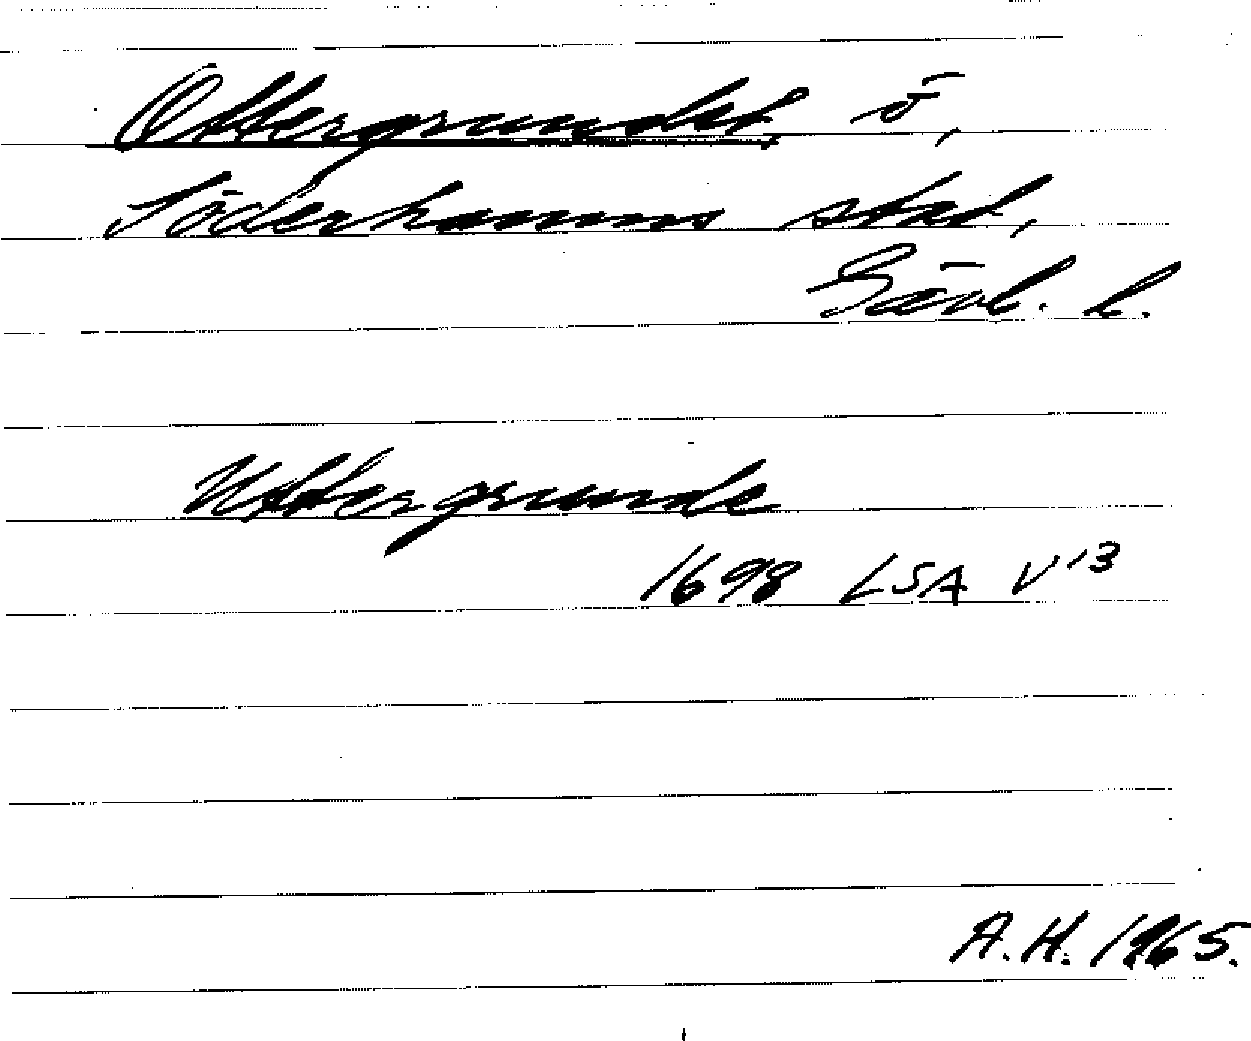 Ottergrundet, ö,
Söderhamns stad,
Gävl. l.
Uttergrunde
1698 LSA V 13
A.H. 1965.